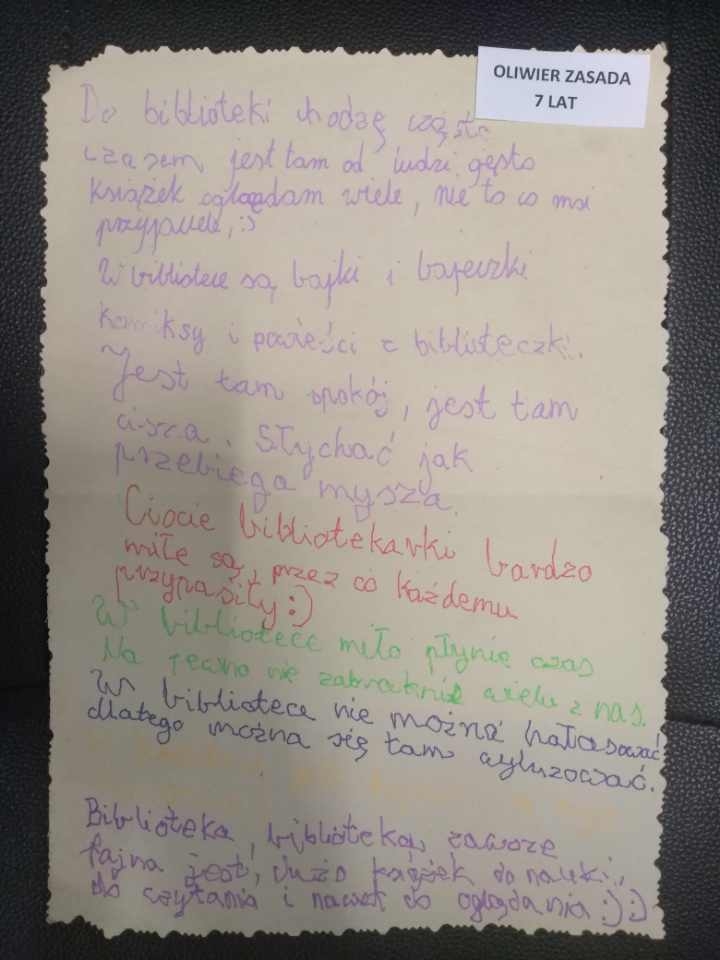 OLIWIER ZASADA
7 LAT
Do biblioteki chodzę często
czasem jest tam od ludzi gęsto
książek oglądam wiele, nie to co moi
przyjaciele, :)
W bibliotece są bajki i bajeczki
komiksy i powieści z biblioteczki.
Jest tam spokój, jest tam
cisza. Słychać jak
przebiega mysza.
Ciocie bibliotekarki bardzo
miłe są, przez co każdemu
przypasiły :)
W bibliotece miło płynie czas
Na pewno nie zabraknie wielu z nas.
W bibliotece nie można hałasować
dlatego można się tam wyluzować.
Biblioteka, biblioteka, zawsze
fajna jest, dużo książek do nauki,
do czytania i nawet do oglądania :) :)